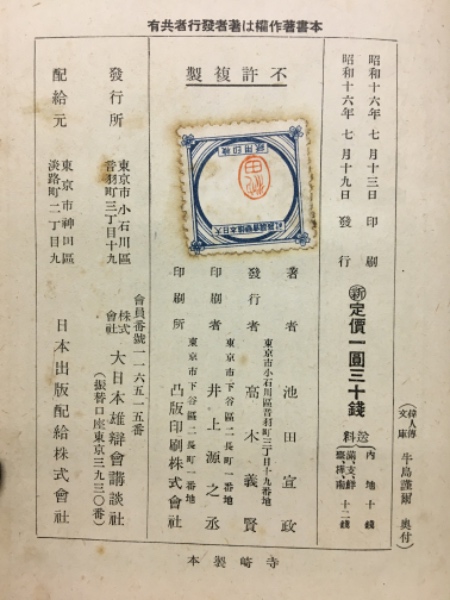 本書著作權は著者發行者共有
(偉人傳文庫) 牛島謹爾 奥付
昭和十六年七月十三日 印刷
昭和十六年七月十九日 發行
新 定價一圓三十錢
送料
內地 十錢
十二錢
不許複製
著者 池田宣政
東京市小石川區音羽町三丁目十九番地
發行者 高木義賢
東京市下谷區二長町一番地
印刷者 井上源之丞
東京市下谷區二長町一番地
印刷所 凸版印刷株式會社
發行所
東京市小石川區
音羽町三丁目十九
會員番號一一六五一五番
株式會社 大日本雄辯會講談社
(振替口座東京三九三〇番)
配給元
東京市神田區
淡路町二丁目九
日本出版配給株式會社
寺崎製本